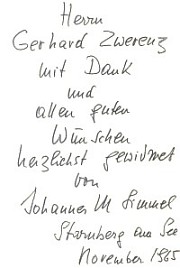 Herrn
Gerhard Zwerenz
mit Dank
und
allen guten
Wünschen
herzlichst gewidmet
von
Johannes M Simmel
Starnberg am See
November 1965